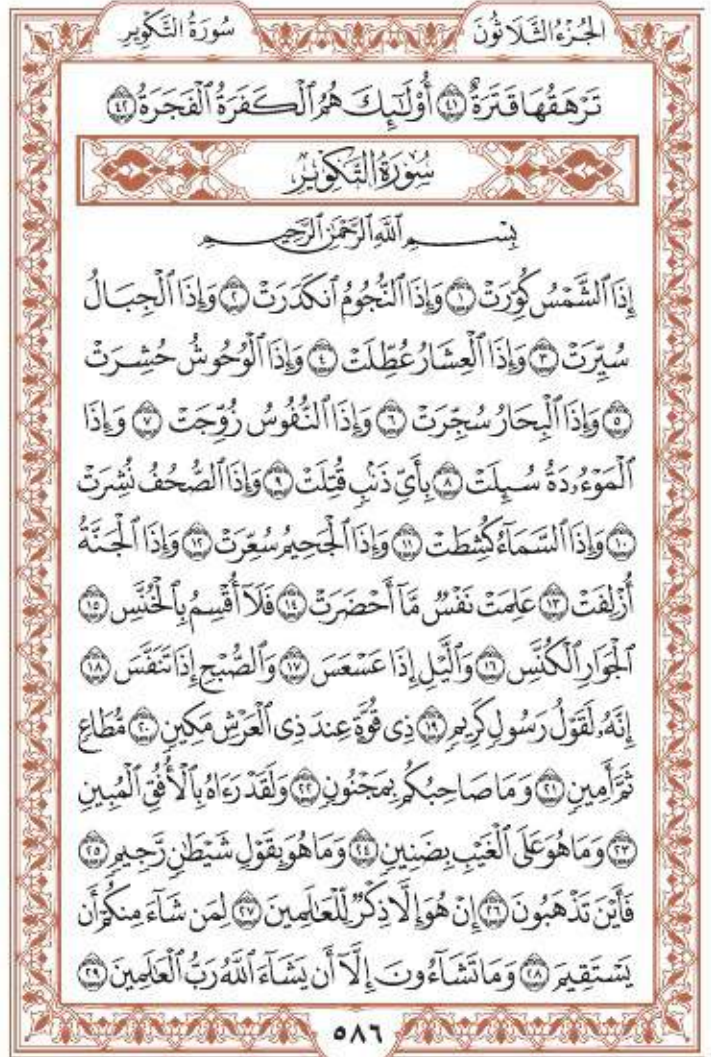 الجزء الثلاثون سورة التكوير
تَرْهَقُهَا قَتَرَةٌ ٤١ أُوْلَٰٓئِكَ هُمُ ٱلْكَفَرَةُ ٱلْفَجَرَةُ ٤٢
سُورَةُ التَّكْوِيرِ
بِسْمِ ٱللَّهِ ٱلرَّحْمَٰنِ ٱلرَّحِيمِ
إِذَا ٱلشَّمْسُ كُوِّرَتْ ١ وَإِذَا ٱلنُّجُومُ ٱنكَدَرَتْ ٢ وَإِذَا ٱلْجِبَالُ
سُيِّرَتْ ٣ وَإِذَا ٱلْعِشَارُ عُطِّلَتْ ٤ وَإِذَا ٱلْوُحُوشُ حُشِرَتْ
٥ وَإِذَا ٱلْبِحَارُ سُجِّرَتْ ٦ وَإِذَا ٱلنُّفُوسُ زُوِّجَتْ ٧ وَإِذَا
ٱلْمَوْءُۥدَةُ سُئِلَتْ ٨ بِأَيِّ ذَنۢبٍ قُتِلَتْ ٩ وَإِذَا ٱلصُّحُفُ نُشِرَتْ
١٠ وَإِذَا ٱلسَّمَآءُ كُشِطَتْ ١١ وَإِذَا ٱلْجَحِيمُ سُعِّرَتْ ١٢ وَإِذَا ٱلْجَنَّةُ
أُزْلِفَتْ ١٣ عَلِمَتْ نَفْسٌ مَّآ أَحْضَرَتْ ١٤ فَلَآ أُقْسِمُ بِٱلْخُنَّسِ ١٥
ٱلْجَوَارِ ٱلْكُنَّسِ ١٦ وَٱلَّيْلِ إِذَا عَسْعَسَ ١٧ وَٱلصُّبْحِ إِذَا تَنَفَّسَ ١٨
إِنَّهُۥ لَقَوْلُ رَسُولٍ كَرِيمٍ ١٩ ذِى قُوَّةٍ عِندَ ذِى ٱلْعَرْشِ مَكِينٍ ٢٠ مُّطَاعٍ
ثَمَّ أَمِينٍ ٢١ وَمَا صَاحِبُكُم بِمَجْنُونٍ ٢٢ وَلَقَدْ رَءَاهُ بِٱلْأُفُقِ ٱلْمُبِينِ
٢٣ وَمَا هُوَ عَلَى ٱلْغَيْبِ بِضَنِينٍ ٢٤ وَمَا هُوَ بِقَوْلِ شَيْطَٰنٍ رَّجِيمٍ ٢٥
فَأَيْنَ تَذْهَبُونَ ٢٦ إِنْ هُوَ إِلَّا ذِكْرٌ لِّلْعَٰلَمِينَ ٢٧ لِمَن شَآءَ مِنكُمْ أَن
يَسْتَقِيمَ ٢٨ وَمَا تَشَآءُونَ إِلَّآ أَن يَشَآءَ ٱللَّهُ رَبُّ ٱلْعَٰلَمِينَ ٢٩
٥٨٦